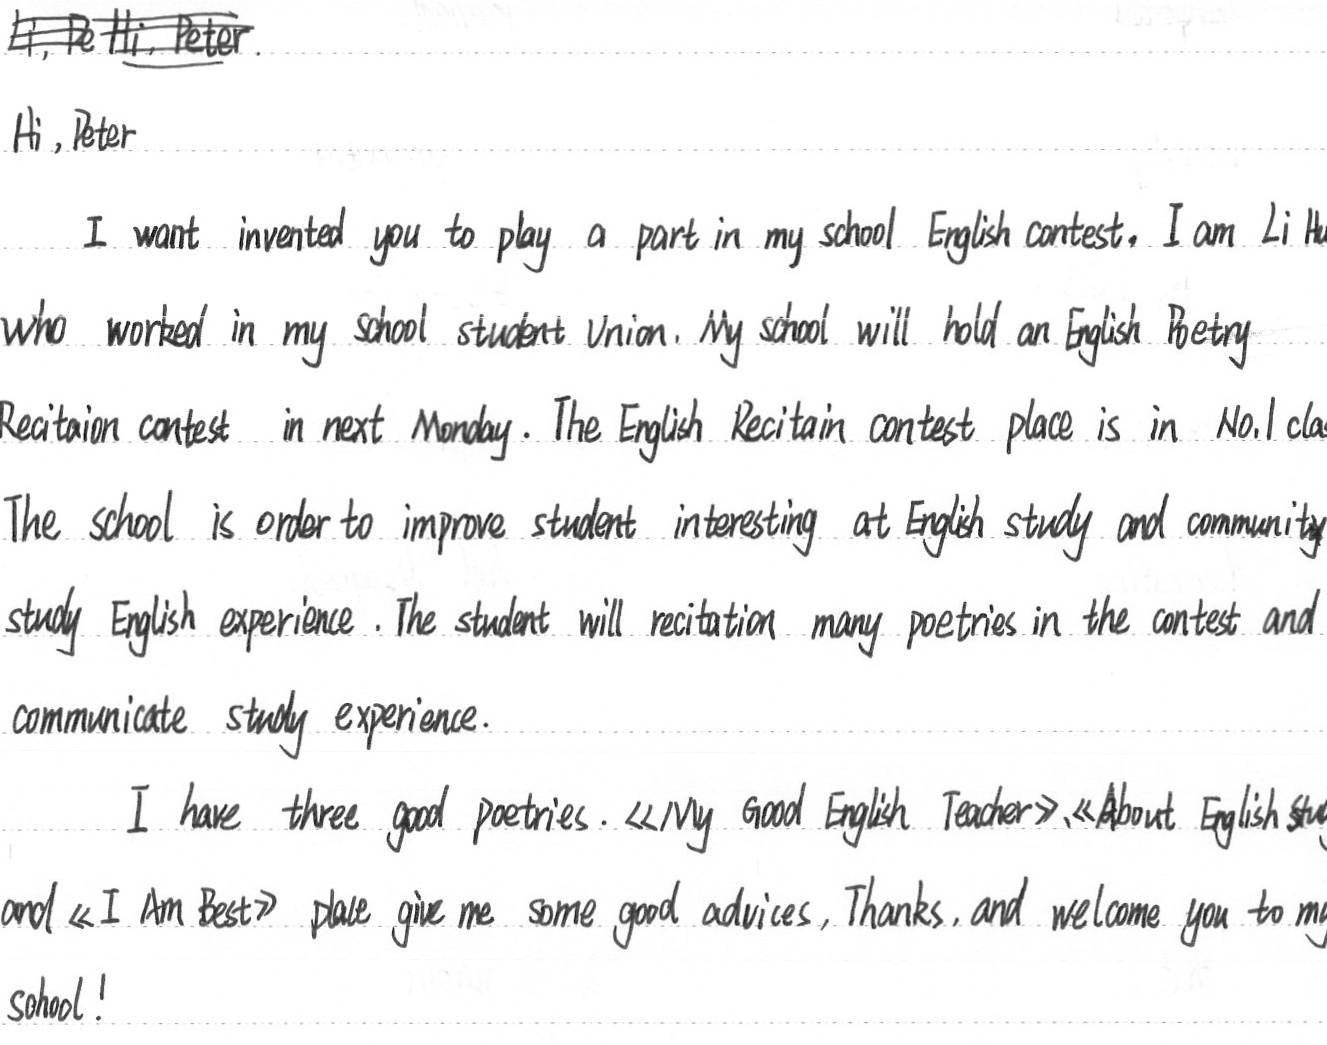 Hi, Peter
Hi, Peter
I want invented you to play a part in my school English contest. I am Li
who worked in my school student Union. My school will hold an English Poetry
Recitaion contest in next Monday. The English Recitain contest place is in No.1
The school is order to improve student interesting at English study and community
study English experience. The student will recitation many poetries in the contest and
communicate study experience.
I have three good poetries. 《My Good English Teacher》、《About English
and 《I Am Best》 place give me some good advices, Thanks, and welcome you to my
school!